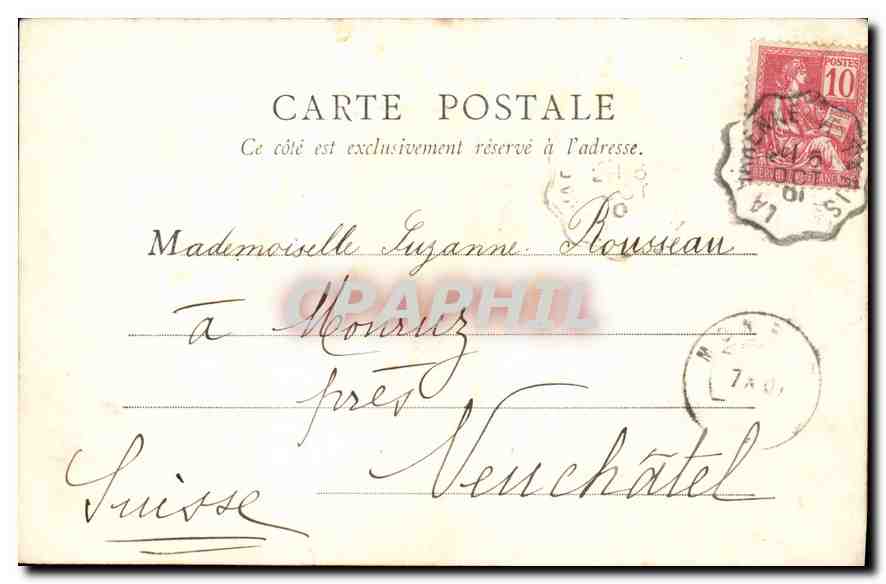 POSTES
10
CARTE POSTALE
Ce côté est exclusivement réservé à l'adresse.
LA PARIS
Mademoiselle Suzanne Rousseau
CPAPHIL
à Monruz
près
Neuchâtel
Suisse